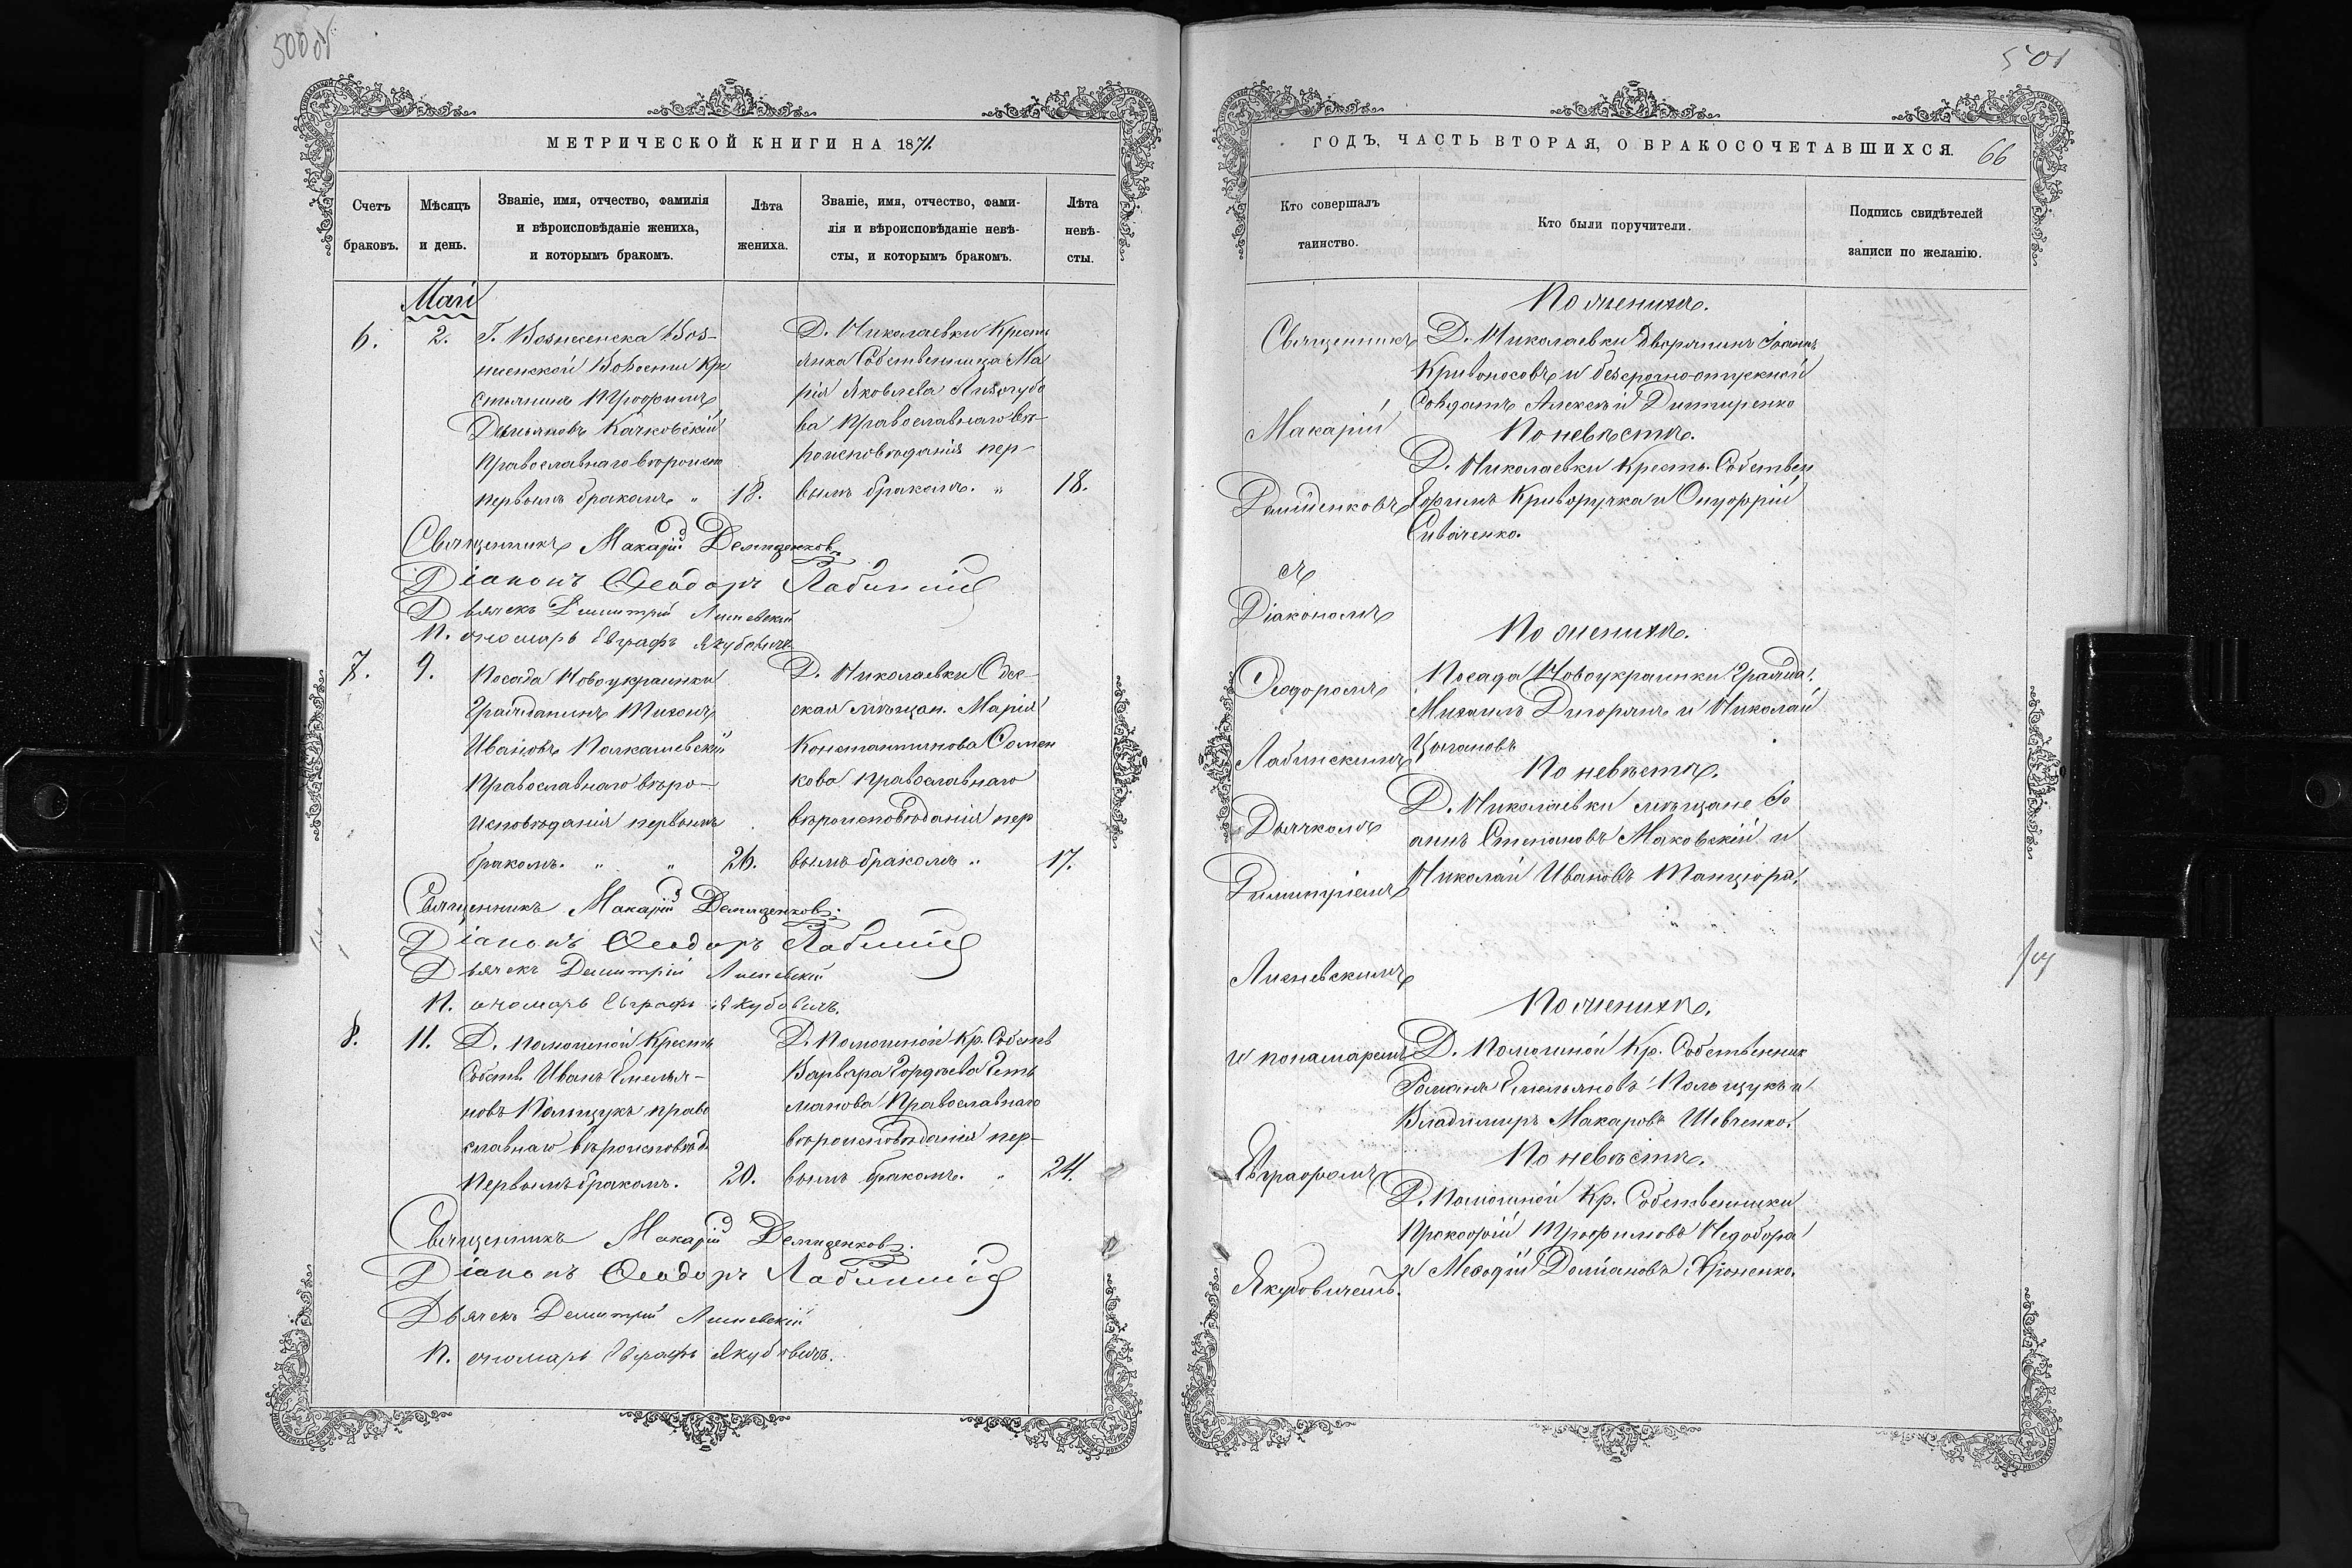 500об
МЕТРИЧЕСКОЙ КНИГИ НА 1871.
Счетъ браковъ.
Мѣсяцъ и день.
Званіе, имя, отчество, фамилія
и вѣроисповѣданіе жениха,
и которымъ бракомъ.
Лѣта жениха.
Званіе, имя, отчество, фами-
лія и вѣроисповѣданіе невѣ-
сты, и которымъ бракомъ.
Лѣта невѣ-
сты.
Май
6.
2.
Г. Вознесенска Воз-
несенской Волости Кре
стьянинъ Трофимъ
Качковскій
Православнаго вѣроисп
первымъ бракомъ "
18.
Д. Николаевки Кресть
янка Собственница Ма
рія Яковлева Лизогубо
ва Православнаго вѣ-
роисповѣданія пер-
вымъ бракомъ. "
18.
Священникъ Макарій Демиденковъ
Діаконъ Ѳеодоръ Лабинскій
Дьячекъ Димитрій Лисневскій
Пономарь Евграфъ Якубовичъ
7.
9.
Посада Новоукраинки
Гражданинъ Тихонъ
Ивановъ
Православнаго вѣро-
исповѣданія первымъ
бракомъ. " "
26.
Д. Николаевки Одес-
ская мѣщан. Марія
Константинова Сомен
кова Православнаго
вѣроисповѣданія пер
вымъ бракомъ "
17.
Священникъ Макарій Демиденковъ.
Діаконъ Ѳеодоръ Лабинскій
Дьячекъ Димитрій Лисневскій
Пономарь Евграфъ Якубовичъ.
8.
11.
Д. Помошной Кресть
Собств. Иванъ Емелья-
новъ Полищукъ право
славнаго вѣроисповѣд.
Первымъ бракомъ.
20.
Д. Помошной Кр. Собств
Варвара Гордѣева Геть
манова Православнаго
вѣроисповѣданія пер-
вымъ бракомъ. "
24.
Священникъ Макарій Демиденковъ.
Діаконъ Ѳеодоръ Лабинскій
Дьячекъ Димитрій Лисневскій
Пономарь Евграфъ Якубовичъ.
501
ГОДЪ, ЧАСТЬ ВТОРАЯ, О БРАКОСОЧЕТАВШИХСЯ.
66
Кто совершалъ
таинство.
Кто были поручители.
Подпись свидѣтелей
записи по желанію.
Священникъ
Макарій
Демиденковъ
съ
Діакономъ
Ѳеодоромъ
Лабинскимъ
Дьячкомъ
Димитріемъ
Лисневскимъ
и понамаремъ
Евграфомъ
Якубовичемъ.
По женихѣ.
Д. Николаевки Дворянинъ Іоаннъ
Кривоносовъ и безсрочно-отпускной
Солдатъ Алексѣй Дитиренко
По невѣстѣ.
Д. Николаевки Кресть. Собствен
Ефимъ Криворучка и Онуфрій
Сиваченко.
По женихѣ.
Посада Новоукраинки Гражда.
Михаилъ и Николай
Цыгановъ
По невѣстѣ.
Д. Николаевки мѣщане Іо
аннъ Степановъ Маковскій и
Николай Ивановъ Танцюра.
По женихѣ.
Д. Помошной Кр. Собственник
Романъ Емельяновъ Полищукъ и
Владимиръ Макаровъ Шевченко.
По невѣстѣ.
Д. Помошной Кр. Собственники
Прокофій Трофимовъ Недобора
и Меѳодій